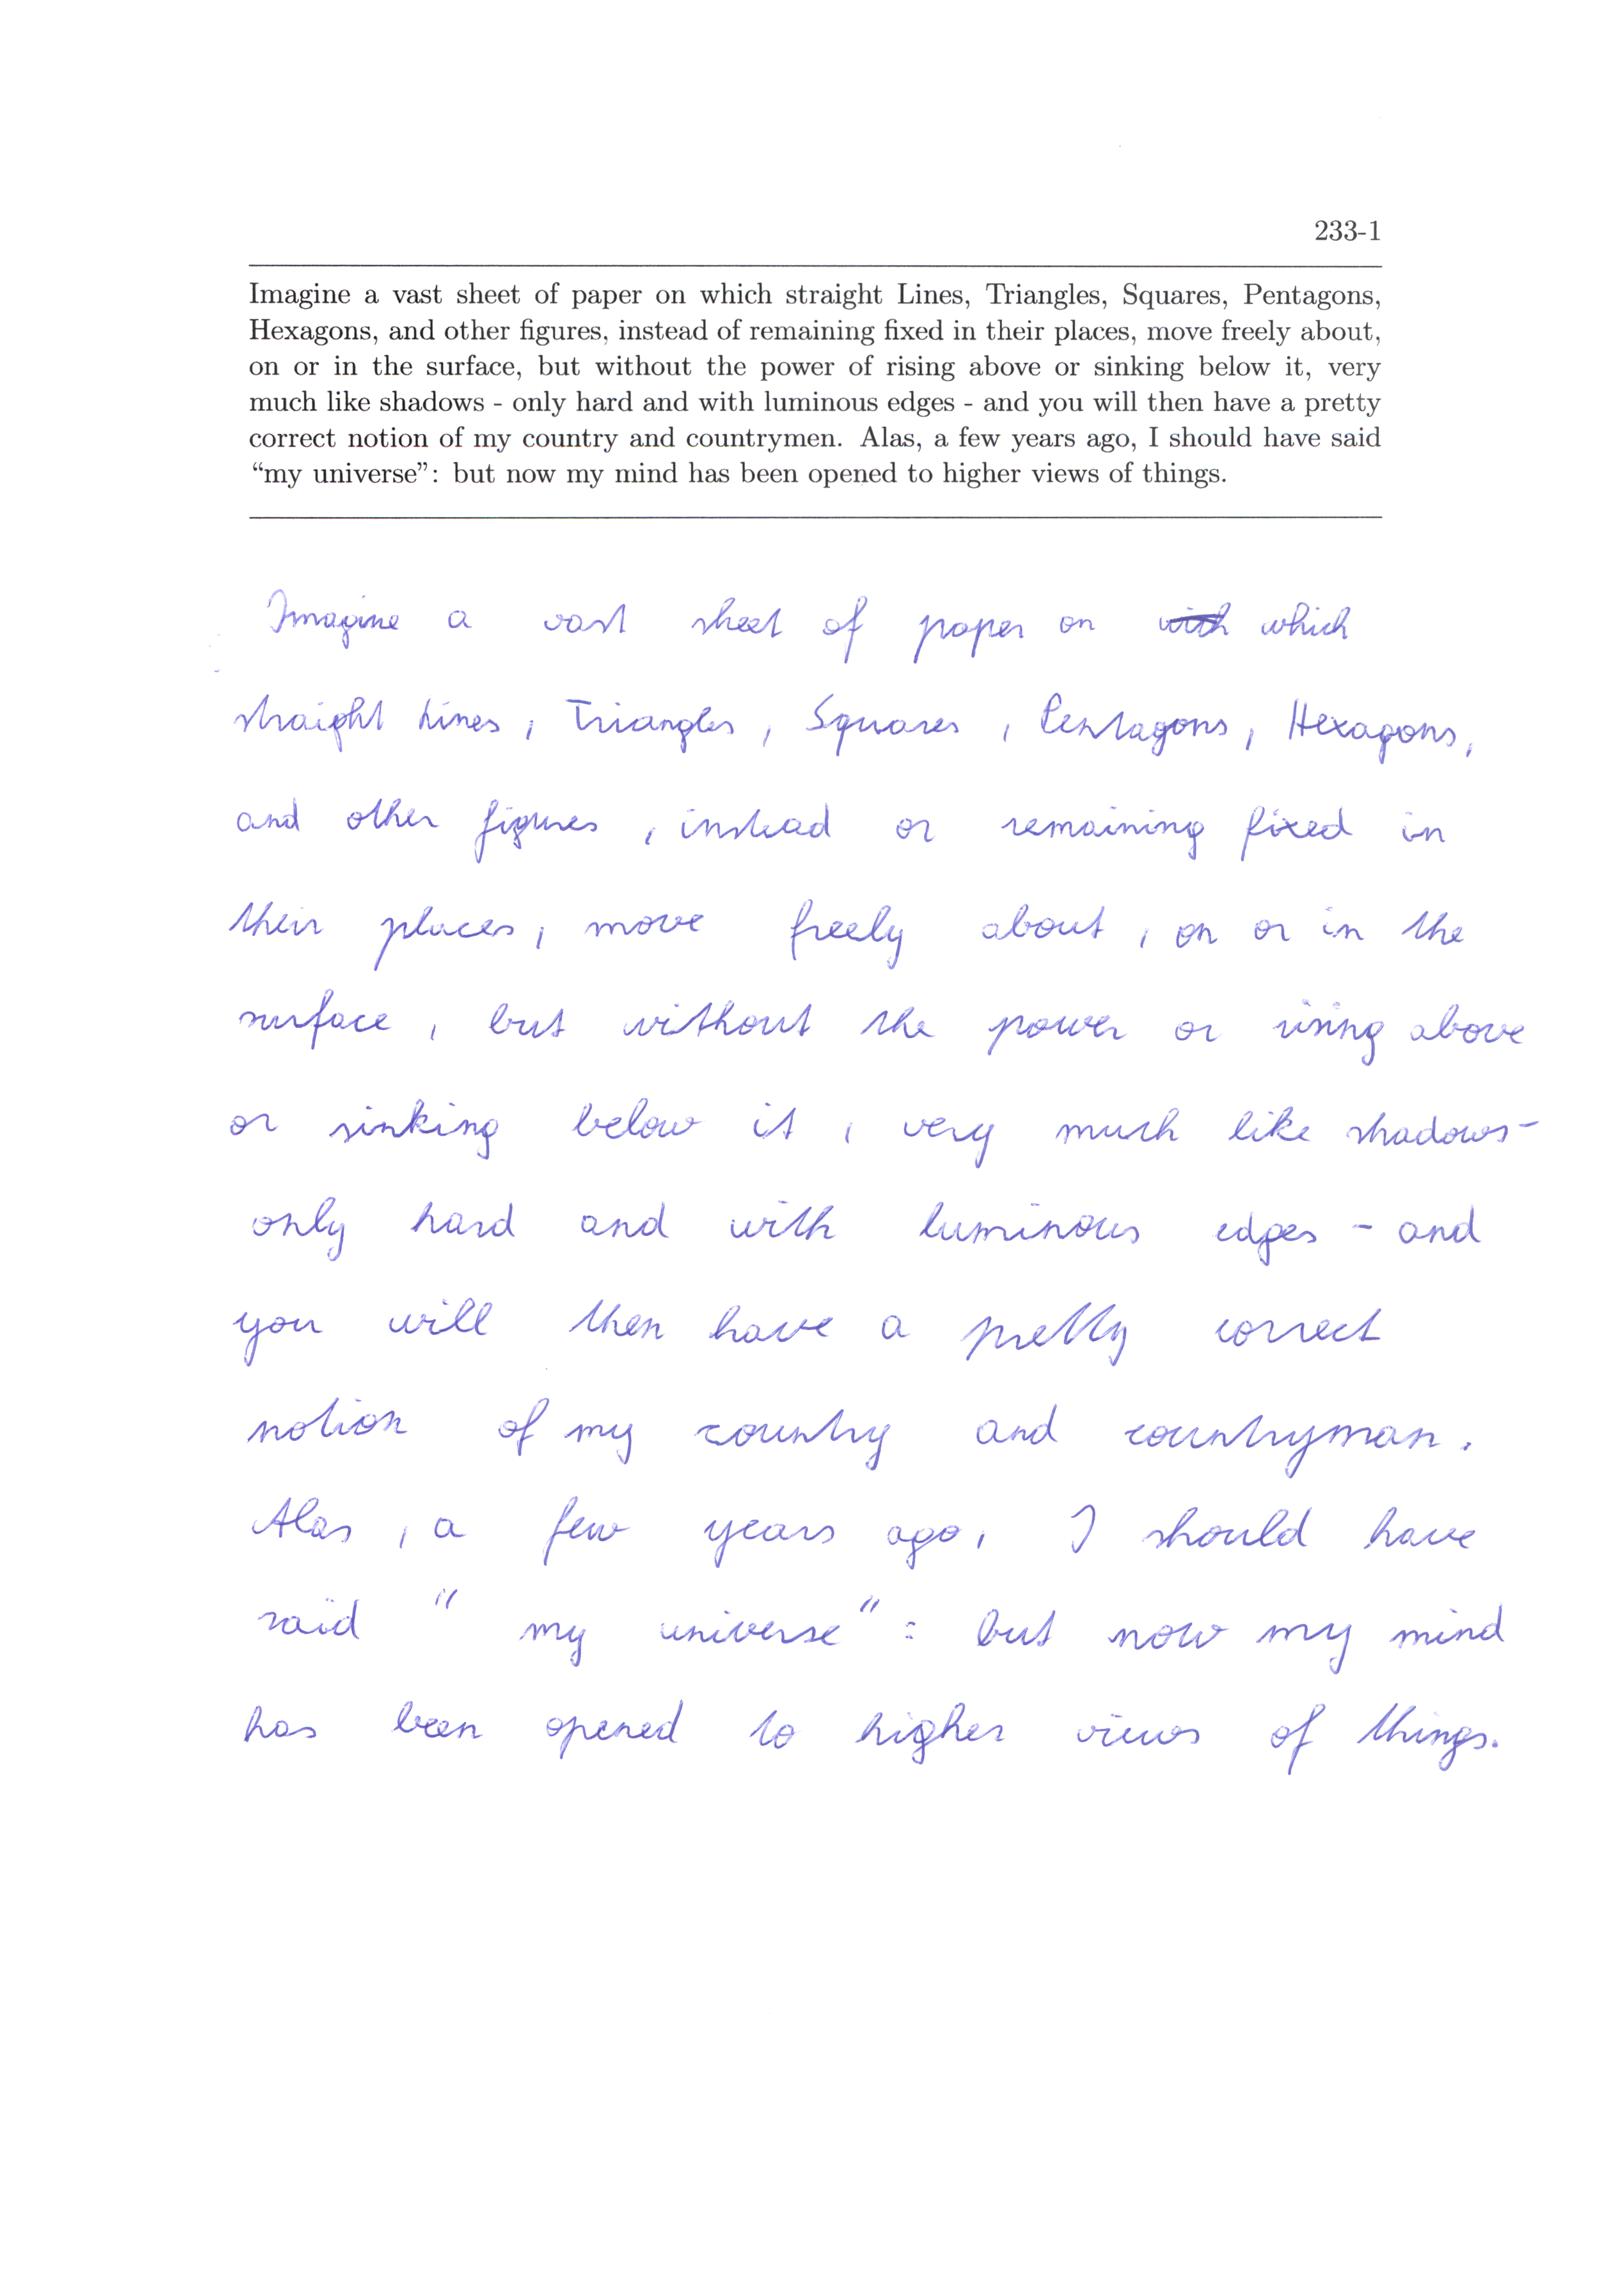 233-1
Imagine a vast sheet of paper on which straight Lines, Triangles, Squares, Pentagons,
Hexagons, and other figures, instead of remaining fixed in their places, move freely about,
on or in the surface, but without the power of rising above or sinking below it, very
much like shadows - only hard and with luminous edges - and you will then have a pretty
correct notion of my country and countrymen. Alas, a few years ago, I should have said
“my universe”: but now my mind has been opened to higher views of things.
Imagine a vast sheet of paper on with which
straight Lines, Triangles, Squares, Pentagons, Hexagons,
and other figures, instead or remaining fixed in
their places, move freely about, on or in the
surface, but without the power or rising above
or sinking below it, very much like shadows -
only hard and with luminous edges - and
you will then have a pretty correct
notion of my country and countryman.
Alas, a few years ago, I should have
said " my universe": but now my mind
has been opened to higher views of things.